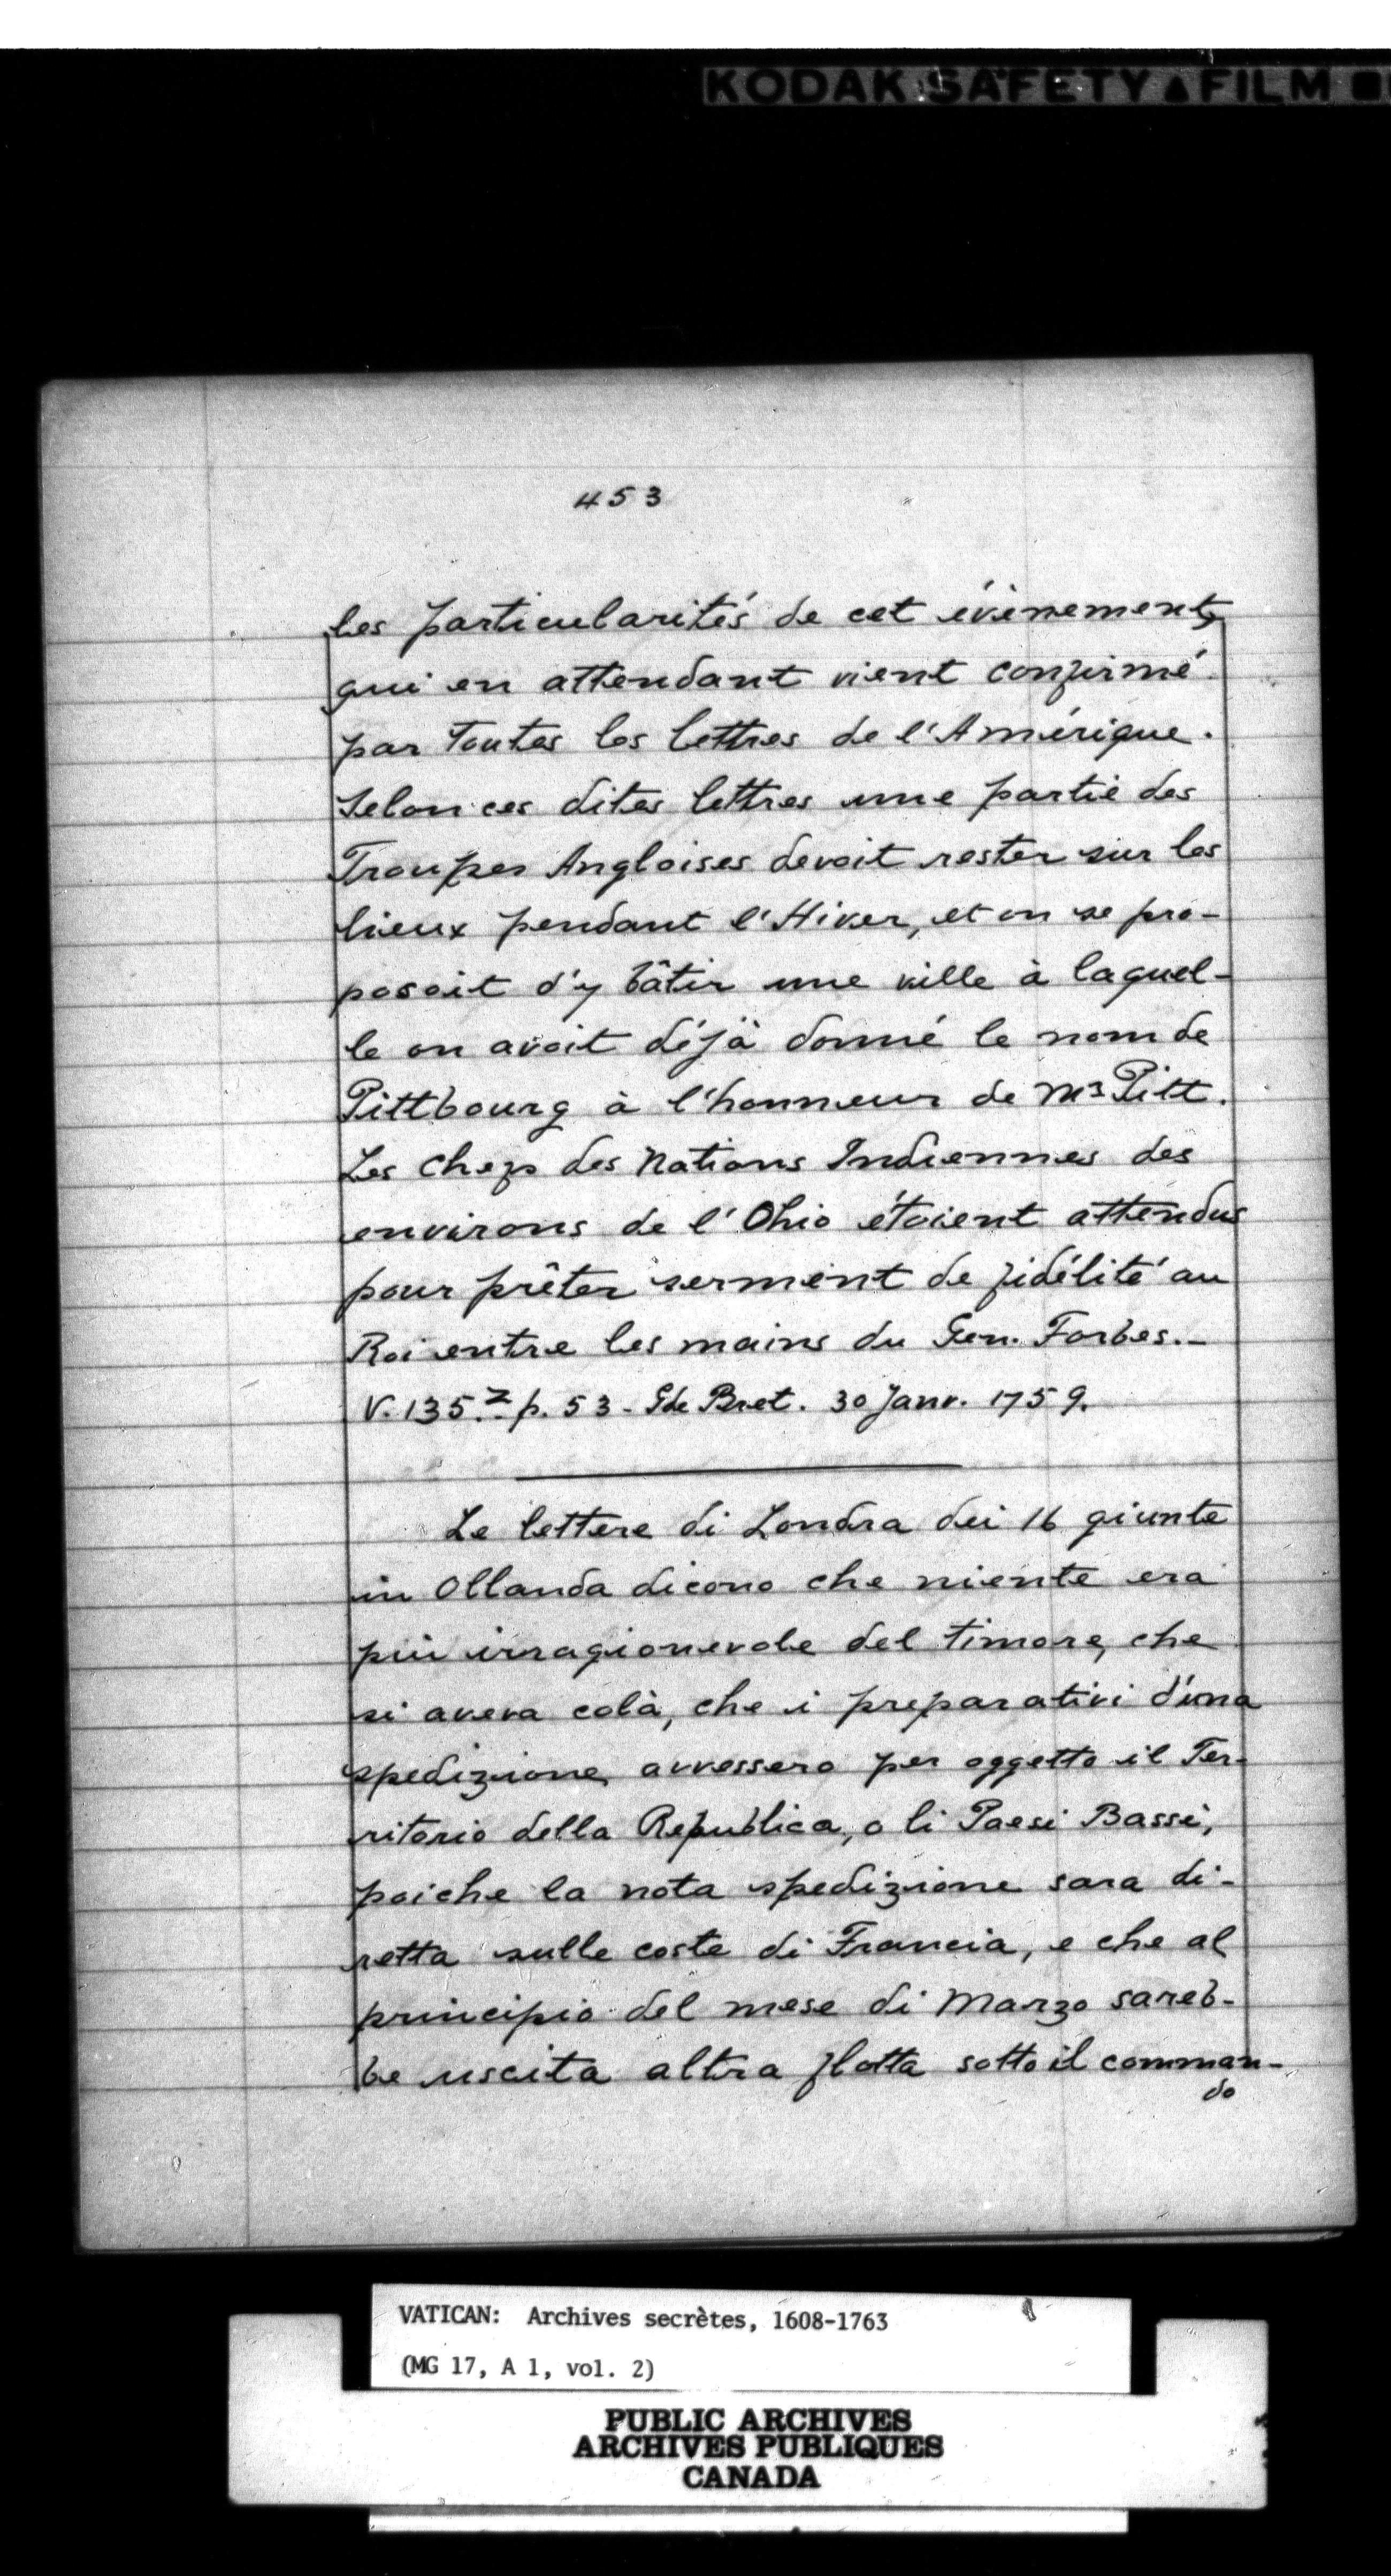 KODAK SAFETY ▲ FILM ■
453
les particularités de cet évènement,
qui en attendant vient confirmé
par toutes les lettres de l'Amérique.
Selon ces dites lettres une partie des
Troupes Angloises devoit rester sur les
lieux pendant l'Hiver, et on se pro-
posoit d'y bâtir une ville à laquel-
le on avoit déjà donné le nom de
Pittbourg à l'honneur de Mr Pitt.
Les Chefs des Nations Indiennes des
environs de l'Ohio étoient attendus
pour prêter serment de fidélité au
Roi entre les mains du Gen. Forbes.-
V. 135.2 p. 53 - Gde Bret. 30 Janv. 1759.
Le lettere di Londra dei 16 giunte
in Ollanda dicono che niente era
più irragionevole del timore, che
si aveva colà, che i preparativi d'una
spedizione avessero per oggetto il Ter-
ritorio della Republica, o li Paesi Bassi,
poiche la nota spedizione sara di-
retta sulle coste di Francia, e che al
principio del mese di Marzo sareb-
be uscita altra flotta sotto il comman-
do
VATICAN: Archives secrètes, 1608-1763
(MG 17, A 1, vol. 2)
PUBLIC ARCHIVES
ARCHIVES PUBLIQUES
CANADA